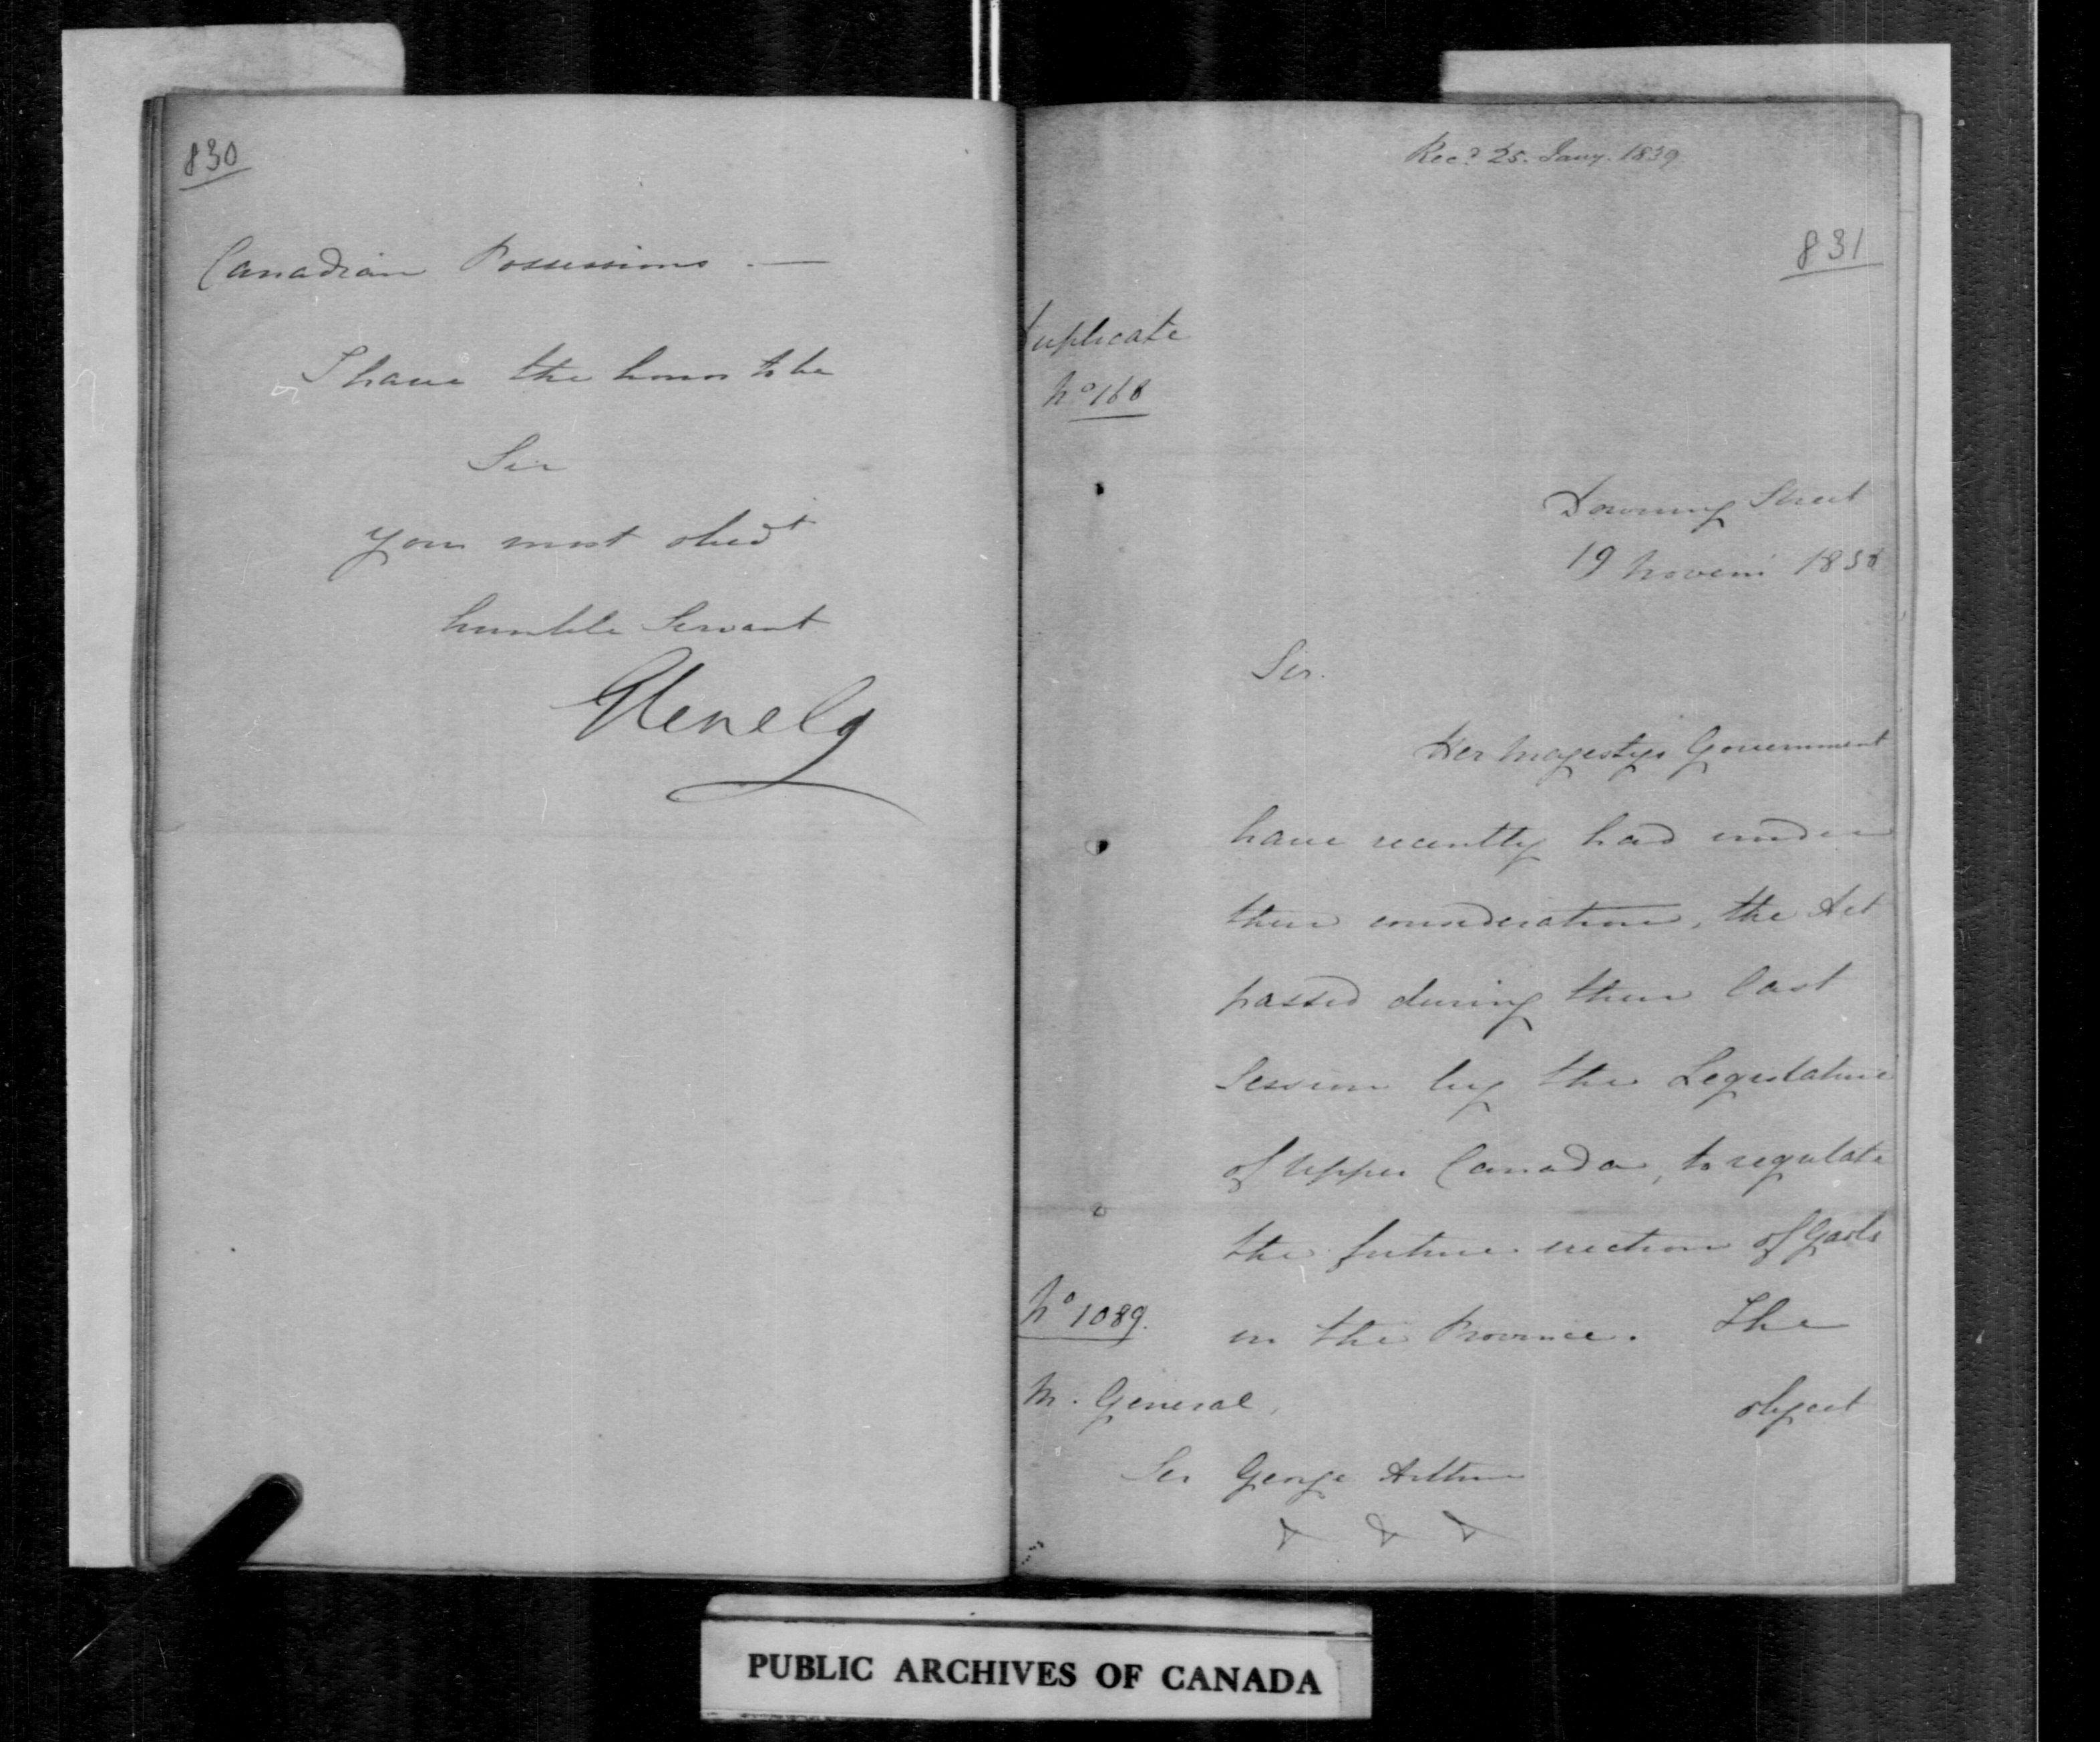 830
Canadian Possessions . —
I have the honor to be
Sir
your most obedt
humble Servant
Glenelg
Recd 25. Jany. 1839
831
Duplicate
No 168
Downing Street
19 Novem 1838
Sir.
Her Majestys Government
have recently had under
their consideration, the Act
passed during their last
Session by the Legislature
of Upper Canada, to regulate
the future erection of Gaols
in the Province. The
object
No 1089.
M. General,
Sir George Arthur
&c &c &c
PUBLIC ARCHIVES OF CANADA